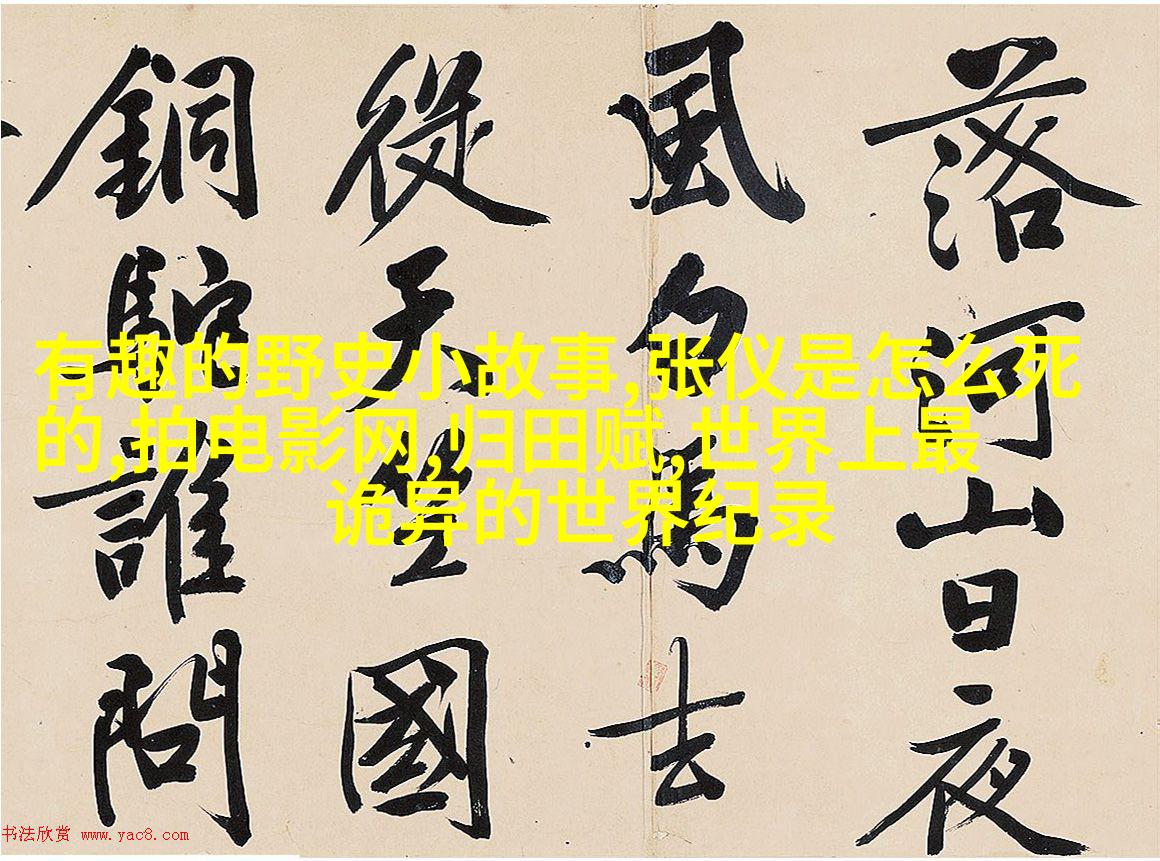 落河山日夜
風白馬去
從天竺國
銅駝誰問
有趣的野史小故事,张仪是怎么死
的,拍电影网,归田赋,世界上最
诡异的世界纪录
书法欣赏 www.yac8.com